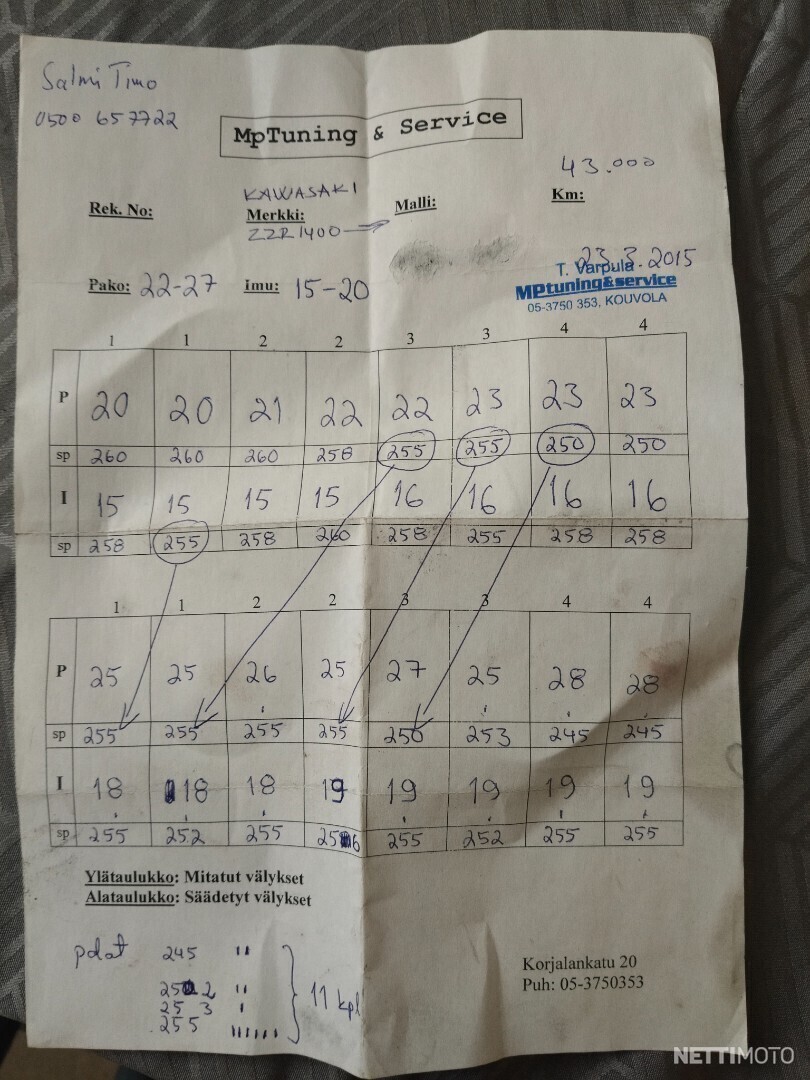 Salmi Timo
0500 657722
MpTuning & Service
43.000
KAWASAKI
Rek. No: Merkki: Malli: Km:
ZZR1400
23.3.2015
T. Varpula
MPtuning&service
05-3750 353, KOUVOLA
Pako: 22-27 Imu: 15-20
1 1 2 2 3 3 4 4
P 20 20 21 22 22 23 23 23
sp 260 260 260 258 255 255 250 250
I 15 15 15 15 16 16 16 16
sp 258 255 258 260 258 255 258 258
1 1 2 2 3 3 4 4
P 25 25 26 25 27 25 28 28
sp 255 255 255 255 250 253 245 245
I 18 18 18 19 19 19 19 19
sp 255 252 255 256 255 252 255 255
Ylätaulukko: Mitatut välykset
Alataulukko: Säädetyt välykset
245 ıı
252 ıı
253 ı
255 ıııııı
11 kpl
Korjalankatu 20
Puh: 05-3750353
NETTIMOTO